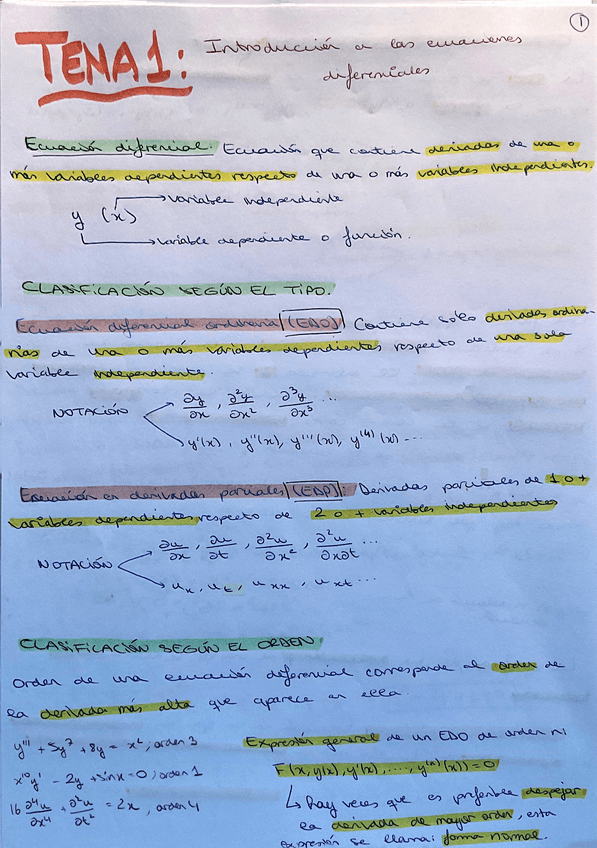 1
TEMA 1: Introducción a las ecuaciones
diferenciales
Ecuación diferencial. Ecuación que contiene derivadas de una o
más variables dependientes respecto de una o más variables independientes.
y (x) → variable independiente
→ variable dependiente o función.
CLASIFICACIÓN SEGÚN EL TIPO.
Ecuación diferencial ordinaria (EDO) Contiene sólo derivadas ordina-
rias de una o más variables dependientes respecto de una sola
variable independiente.
NOTACIÓN
∂y/∂x, ∂²y/∂x², ∂³y/∂x³ ...
y'(x), y''(x), y'''(x), y⁽⁴⁾(x) ...
Ecuación en derivadas parciales (EDP): Derivadas parciales de 1 o +
variables dependientes respecto de 2 o + variables independientes
NOTACIÓN
∂u/∂x, ∂u/∂t, ∂²u/∂x², ∂²u/∂x∂t ...
uₓ, uₜ, uₓₓ, uₓₜ ...
CLASIFICACIÓN SEGÚN EL ORDEN.
Orden de una ecuación diferencial corresponde al orden de
la derivada más alta que aparece en ella.
y''' + 5y⁷ + 8y = x², orden 3
x¹⁰y' - 2y + sinx = 0, orden 1
16 ∂⁴u/∂x⁴ + ∂²u/∂t² = 2x, orden 4
Expresión general de un EDO de orden n:
F(x, y(x), y'(x), ..., y⁽ⁿ⁾(x)) = 0
↳ Hay veces que es preferible despejar
la derivada de mayor orden, esta
expresión se llama: forma normal.